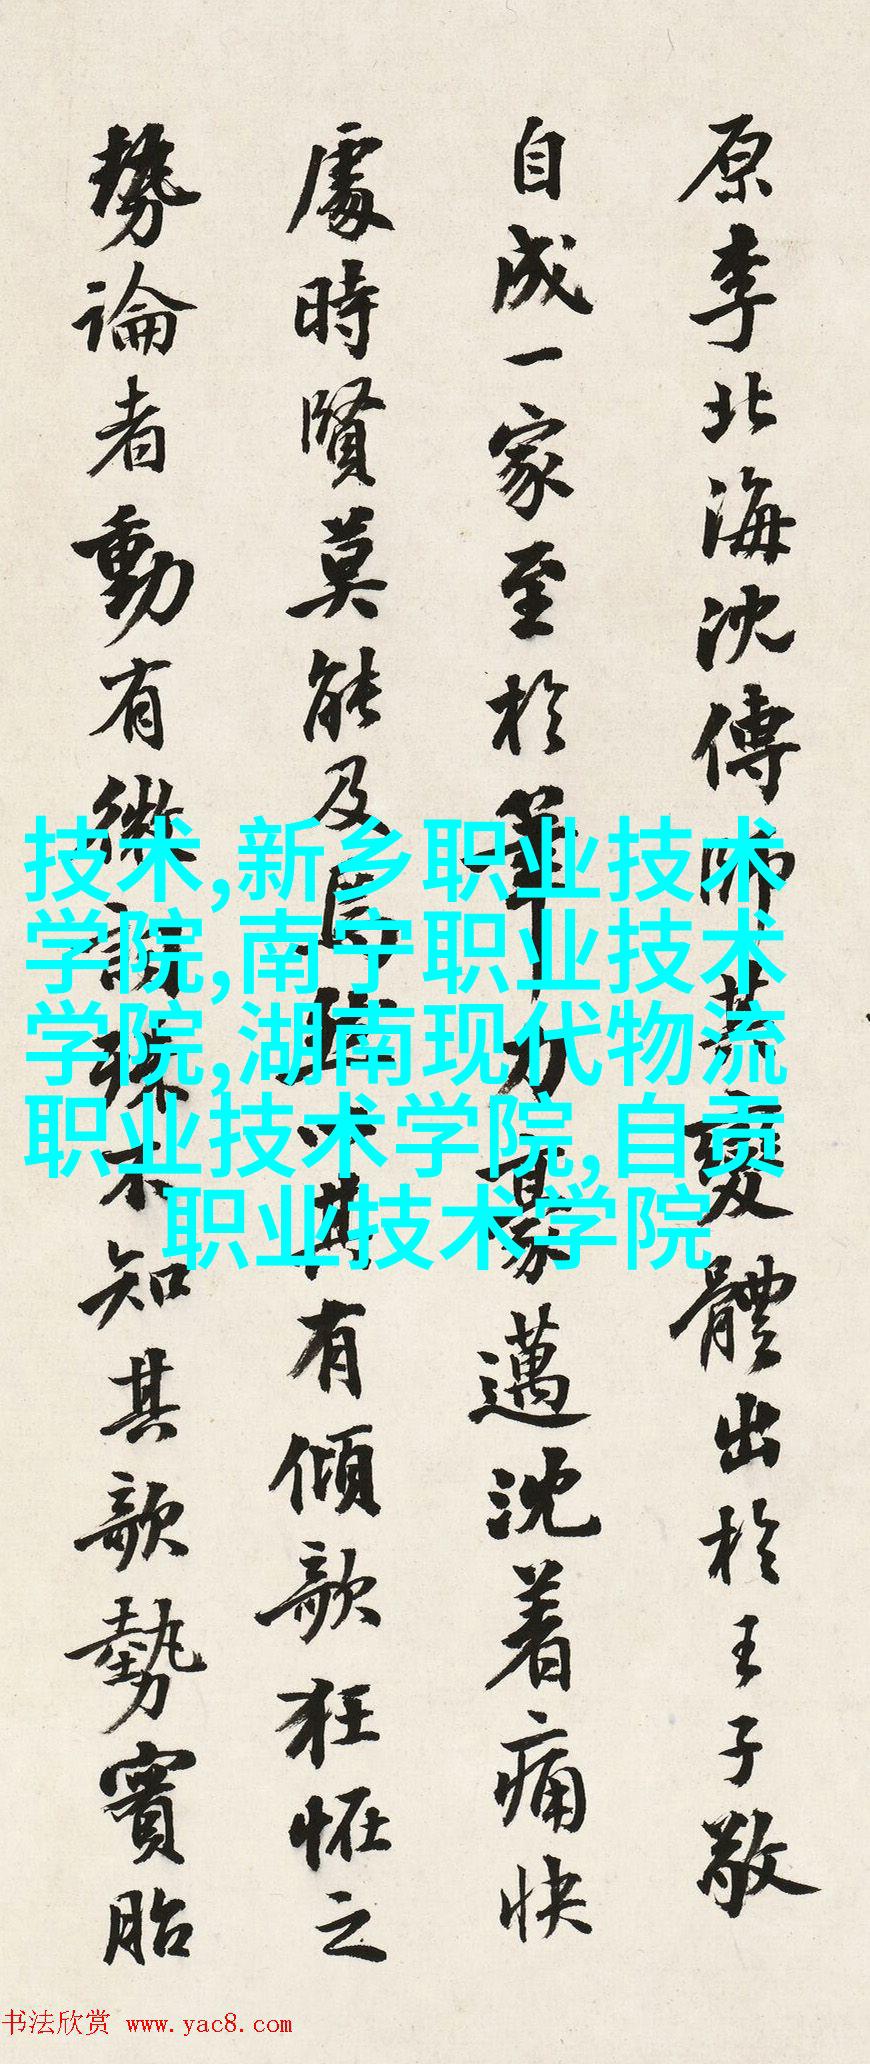 原李北海沈傳師蓋變體出於王子敬
自成一家至於筆力豪邁沈着痛快
處時賢莫能及 有傾欹狂怪之
勢論者動有微 不知其欹勢實胎
技术,新乡职业技术
学院,南宁职业技术
学院,湖南现代物流
职业技术学院,自贡
职业技术学院
书法欣赏 www.yac8.com